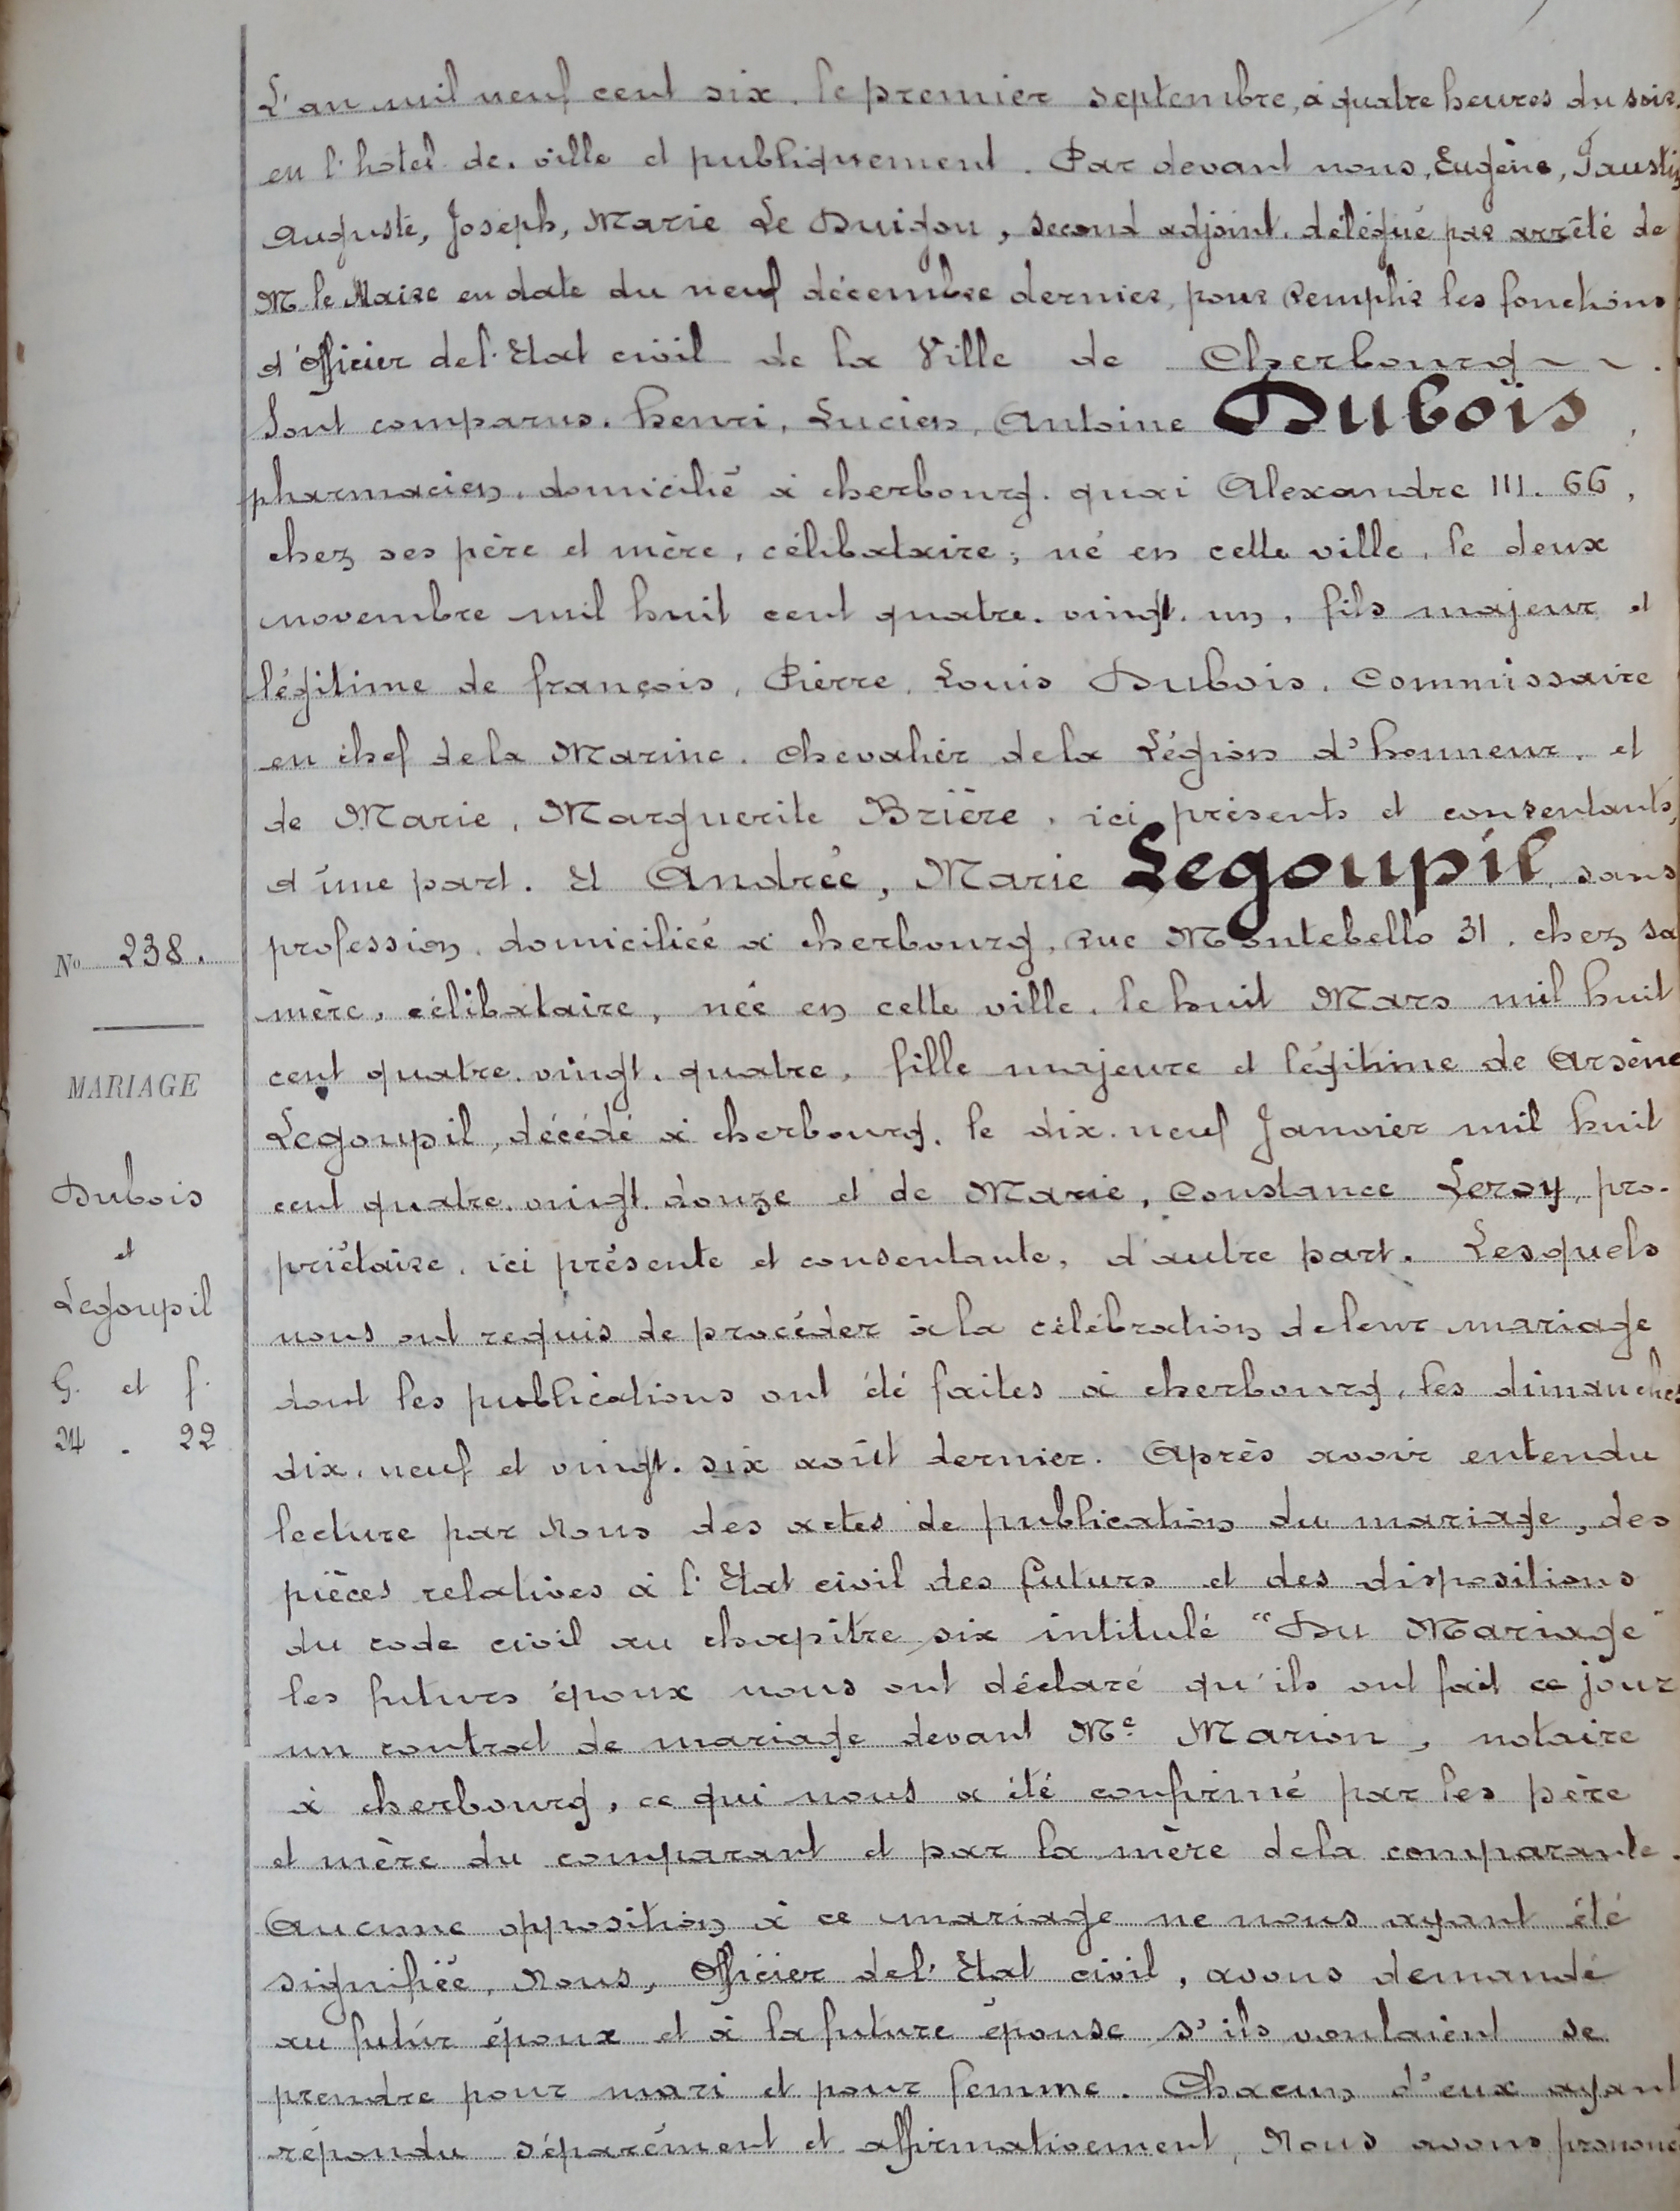 L'an mil neuf cent six, le premier septembre, à quatre heures du soir,
en l'hotel de ville et publiquement. Par devant nous, Eugène, Faustin
Auguste, Joseph, Marie Le Duigou, second adjoint, délégué par arrêté de
M. le Maire en date du neuf décembre dernier, pour remplir les fonctions
d'officier de l'Etat civil de la Ville de Cherbourg ~ ~ .
Sont comparus. henri, Lucien, Antoine Dubois,
pharmacien, domicilié à cherbourg. quai Alexandre III. 66,
chez ses père et mère, célibataire; né en cette ville, le deux
novembre mil huit cent quatre. vingt. un, fils majeur et
légitime de françois, Pierre, Louis Dubois, Commissaire
en chef de la Marine. chevalier de la Légion d'honneur. et
de Marie, Marguerite Brière, ici présents et consentants,
d'une part. Et Andrée, Marie Legoupil, sans
profession, domiciliée à cherbourg, rue Montebello 31, chez sa
mère, célibataire, née en cette ville, le huit Mars mil huit
cent quatre. vingt. quatre, fille majeure et légitime de Arsène
Legoupil, décédé à cherbourg, le dix. neuf Janvier mil huit
cent quatre. vingt. douze et de Marie, Constance Leroy, pro-
priétaire, ici présente et consentante, d'autre part. Lesquels
nous ont requis de procéder à la célébration de leur mariage
dont les publications ont été faites à cherbourg, les dimanches
dix. neuf et vingt. six août dernier. Après avoir entendu
lecture par Nous des actes de publication du mariage, des
pièces relatives à l'Etat civil des futurs et des dispositions
du code civil au chapitre six intitulé "Du Mariage"
les futurs époux nous ont déclaré qu'ils ont fait ce jour
un contrat de mariage devant Me Marion, notaire
à cherbourg, ce qui nous a été confirmé par les père
et mère du comparant et par la mère de la comparante.
Aucune opposition à ce mariage ne nous ayant été
signifiée, Nous, Officier de l'Etat civil, avons demandé
au futur époux et à la future épouse s'ils voulaient se
prendre pour mari et pour femme. Chacun d'eux ayant
répondu séparément et affirmativement, Nous avons prononcé
No 238.
MARIAGE
Dubois
et
Legoupil
G. et f.
24 . 22